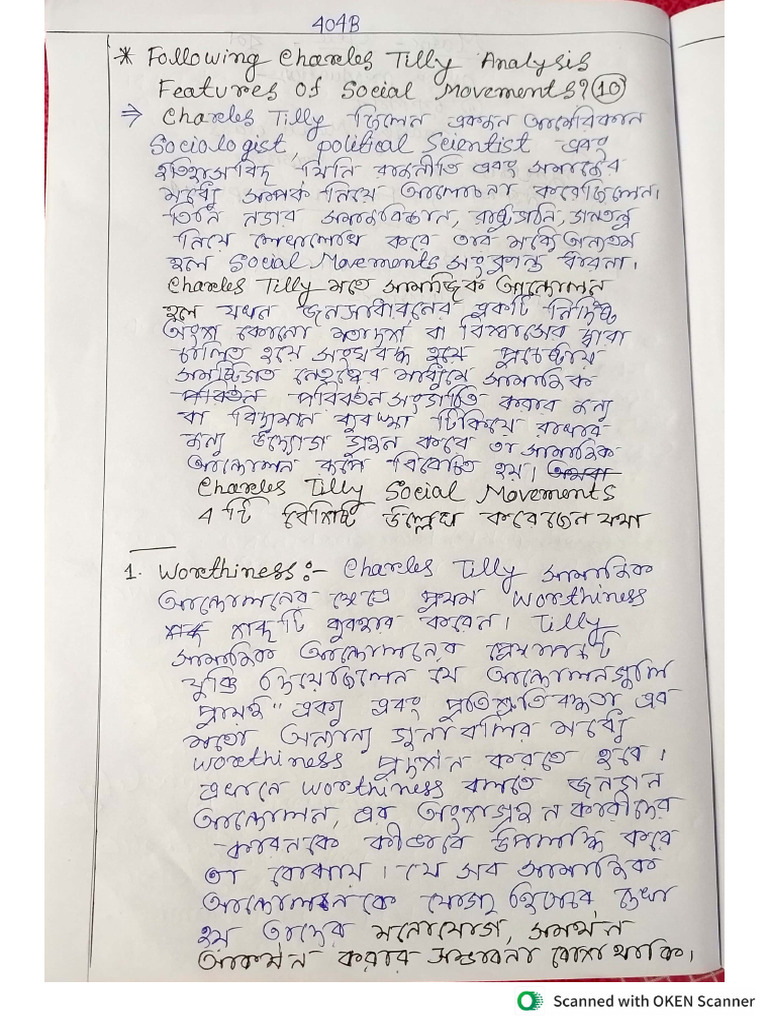 404B
* Following Charles Tilly Analysis
Features Of Social Movements? (10)
⇒ Charles Tilly ছিলেন একজন আমেরিকান
Sociologist, political Scientist এবং
ইতিহাসবিদ যিনি রাজনীতি এবং সমাজের
মধ্যে সম্পর্ক নিয়ে আলোচনা করেছিলেন।
তিনি নগর সমাজবিজ্ঞান, রাষ্ট্রগঠন, গনতন্ত্র
নিয়ে লেখালেখি করে তার মধ্যে অন্যতম
হল Social Movements সংক্রান্ত ধারনা।
Charles Tilly মতে সামাজিক আন্দোলন
হল যখন জনসাধারনের একটি নির্দিষ্ট
অংশ কোনো মতাদর্শ বা বিশ্বাসের দ্বারা
চালিত হয়ে সংঘবদ্ধ হয়ে প্রচেষ্টায়
সমষ্টিগত নেতৃত্বের মাধ্যমে সামাজিক
পরিবর্তন পরিবর্তন সংগঠিত করার জন্য
বা বিদ্যমান ব্যবস্থা টিকিয়ে রাখার
জন্য উদ্যোগ গ্রহন করে তা সামাজিক
আন্দোলন রূপে বিবেচিত হয়। অথবা
Charles Tilly Social Movements
4 টি বৈশিষ্ট উল্লেখ করেছেন যথা
1. Worthiness:- Charles Tilly সামাজিক
আন্দোলনের ক্ষেত্রে প্রথম Worthiness
শব্দটি ব্যবহার করেন। Tilly
সামাজিক আন্দোলনের প্রেক্ষাপটে
যুক্তি দিয়েছিলেন যে আন্দোলনগুলি
প্রায়ই "ঐক্য এবং প্রতিশ্রুতিবদ্ধতা এর
মতো অন্যান্য গুনাবলির মধ্যে
Worthiness প্রদর্শন করতে হবে।
এখানে worthiness বলতে জনগন
আন্দোলন, এর অংশগ্রহনকারীদের
কারনকে কীভাবে উপলব্ধি করে
তা বোঝায়। যে সব সামাজিক
আন্দোলনকে যোগ্য হিসেবে দেখা
হয় তাদের মনোযোগ, সমর্থন
আকর্ষন করার সম্ভাবনা বেশা থাকে।
Scanned with OKEN Scanner